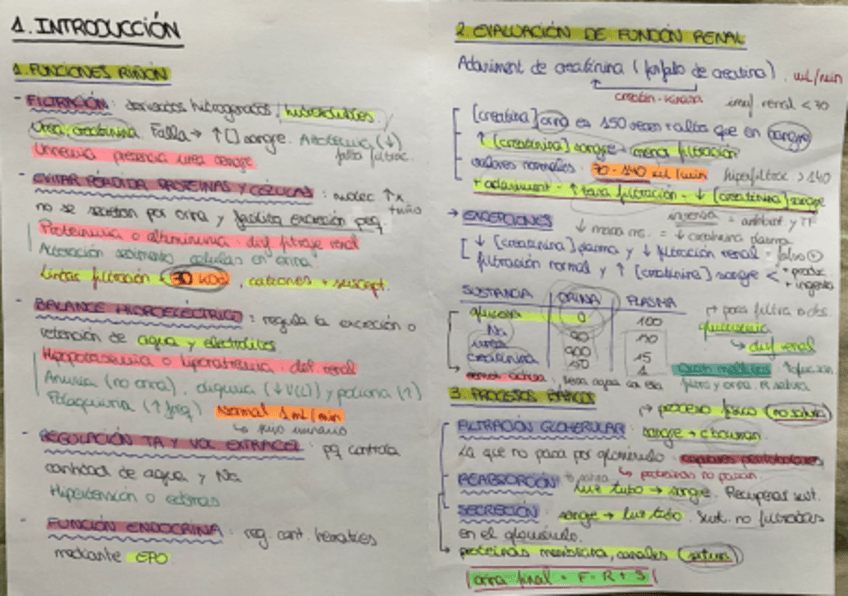 1. INTRODUCCIÓN
1. FUNCIONES RIÑÓN
- FILTRACIÓN: derivados hidrogenados, hidrosolubles,
Urea, creatinina. Falla → ↑[] sangre. (↓)
Uremia presencia urea sangre
- EVITAR PÉRDIDA PROTEÍNAS Y CÉLULAS: molec ↑x
no se excretan por orina y facilita excreción peq. tmño
Proteinuria o albuminuria - filtraje renal
Alteración sedimento, células en orina
Límite filtración 30 KDa, cationes + suscept.
- BALANCE HIDROELÉCTRICO: regula la excreción o
retención de agua y electrolitos
def. renal
Anuria (no orina), oliguria (↓V(L)) y poliuria (↑)
Polaquiuria (↑ freq) Normal 1 mL/min
↳ flujo urinario
- REGULACIÓN TA Y VOL EXTRACEL: pq controla
cantidad de agua y Na
Hipertensión o edemas
- FUNCIÓN ENDOCRINA: reg. cant. hematíes
mediante EPO
2. EVALUACIÓN DE FUNCIÓN RENAL
Aclariment de creatinina (fosfato de creatina). mL/min
renal < 30
[creatinina] orina es 150 veces + alta que en sangre
↑ [creatinina] sangre = menor filtración
valores normales: 70 - 140 mL/min hiperfiltrac > 140
+ aclariment - ↑ tasa filtración - ↓ [creatinina] sangre
→ EXCEPCIONES ↓ masa = ↓ creatinina plasma
[↓ [creatinina] plasma y ↓ filtración renal = falso
filtración normal y ↑ [creatinina] sangre < + produc.
+ ingesta
SUSTANCIA ORINA PLASMA
glucosa 0 100
Na 90
urea 900 15
creatinina 150 1
glucosuria
↳ renal
3. PROCESOS BÁSICOS
→ proceso físico (no satura)
FILTRACIÓN GLOMERULAR: sangre → c. bowman.
La que no pasa por glomérulo - capilares peritubulares
↳ proteínas no pasan.
REABSORCIÓN: luz tubo → sangre. Recuperas sust.
SECRECIÓN: sangre → luz tubo. Sust. no filtradas
en el glomérulo.
→ proteínas membrana, canales (satura)
orina final = F - R + S